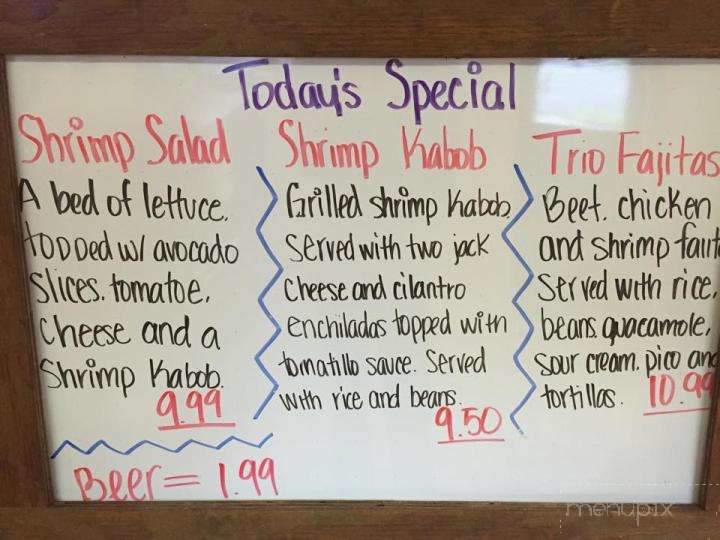 Today's Special
Shrimp Salad
A bed of lettuce.
topped w/ avocado
slices. tomatoe.
cheese and a
Shrimp Kabob.
9.99
Beer = 1.99
Shrimp Kabob
Grilled shrimp kabob.
Served with two jack
cheese and cilantro
enchiladas topped with
tomatillo sauce. Served
with rice and beans.
9.50
Trio Fajitas
Beef. chicken
and shrimp fajit
Served with rice,
beans. guacamole,
sour cream. pico and
tortillas.
10.99
menupix